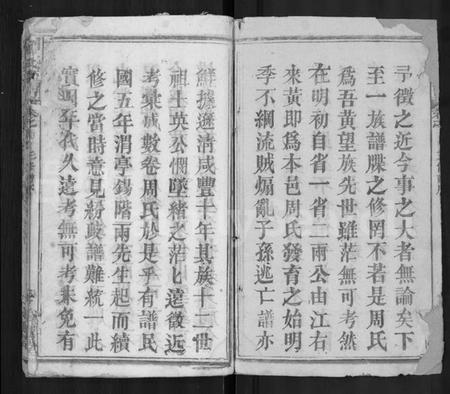 寻徵之近今事之大者無論矣下
至一族譜牒之修罔不若是周氏
爲吾黄望族先世雖茫無可考然
在明初自省一省二兩公由江右
來黄即爲本邑周氏發育之始明
季不綱流賊煽亂子孫逃亡譜亦
鮮據遜清咸豐十年其族十二世
祖士英公憫墜緒之茫匕遠徵近
考彚成數卷周氏於是乎有譜民
國五年渭亭錫階兩先生起而續
修之當時意見紛歧譜難統一此
實因年代久遠考無可考未免有